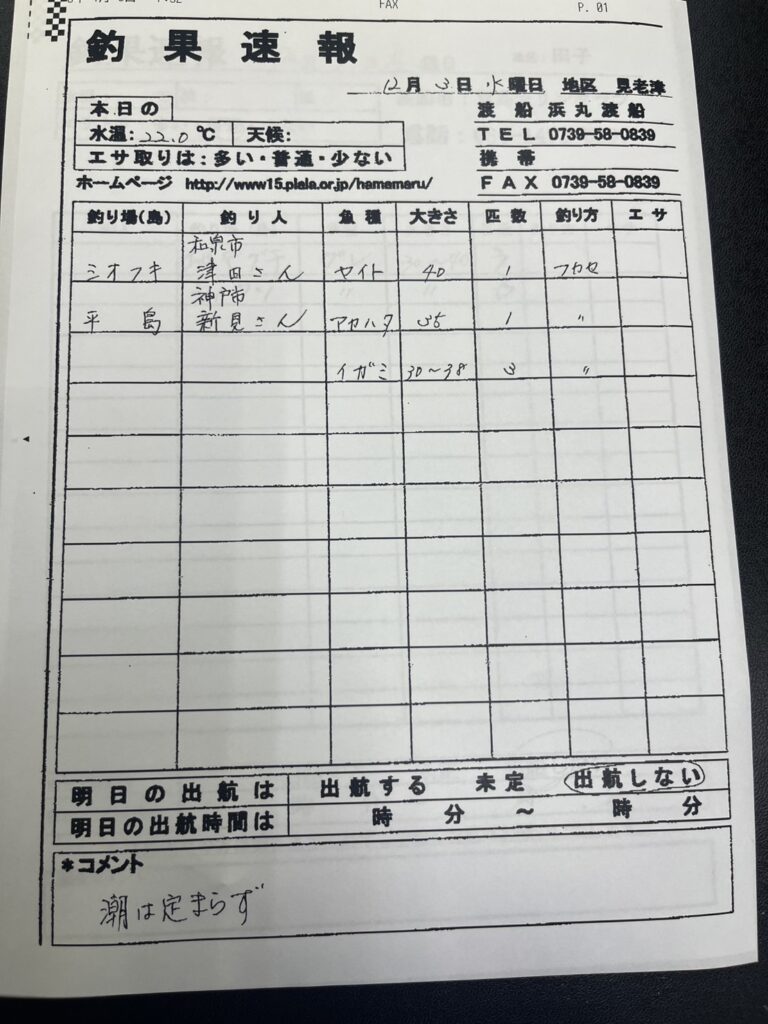 FAX P. 01
釣果速報
12月 3日 水曜日 地区 見老津
本日の
水温: 22.0 ℃ 天候:
エサ取りは:多い・普通・少ない
渡船 浜丸渡船
TEL 0739-58-0839
携帯
FAX 0739-58-0839
ホームページ http://www15.plala.or.jp/hamamaru/
釣り場(島) 釣り人 魚種 大きさ 匹数 釣り方 エサ
和泉市
ミオフキ 津田さん ヤイト 40 1 フカセ
神戸市
平島 新見さん アカハタ 35 1 〃
イガミ 30~38 3 〃
明日の出航は 出航する 未定 出航しない
明日の出航時間は 時 分 ~ 時 分
*コメント
潮は定まらず